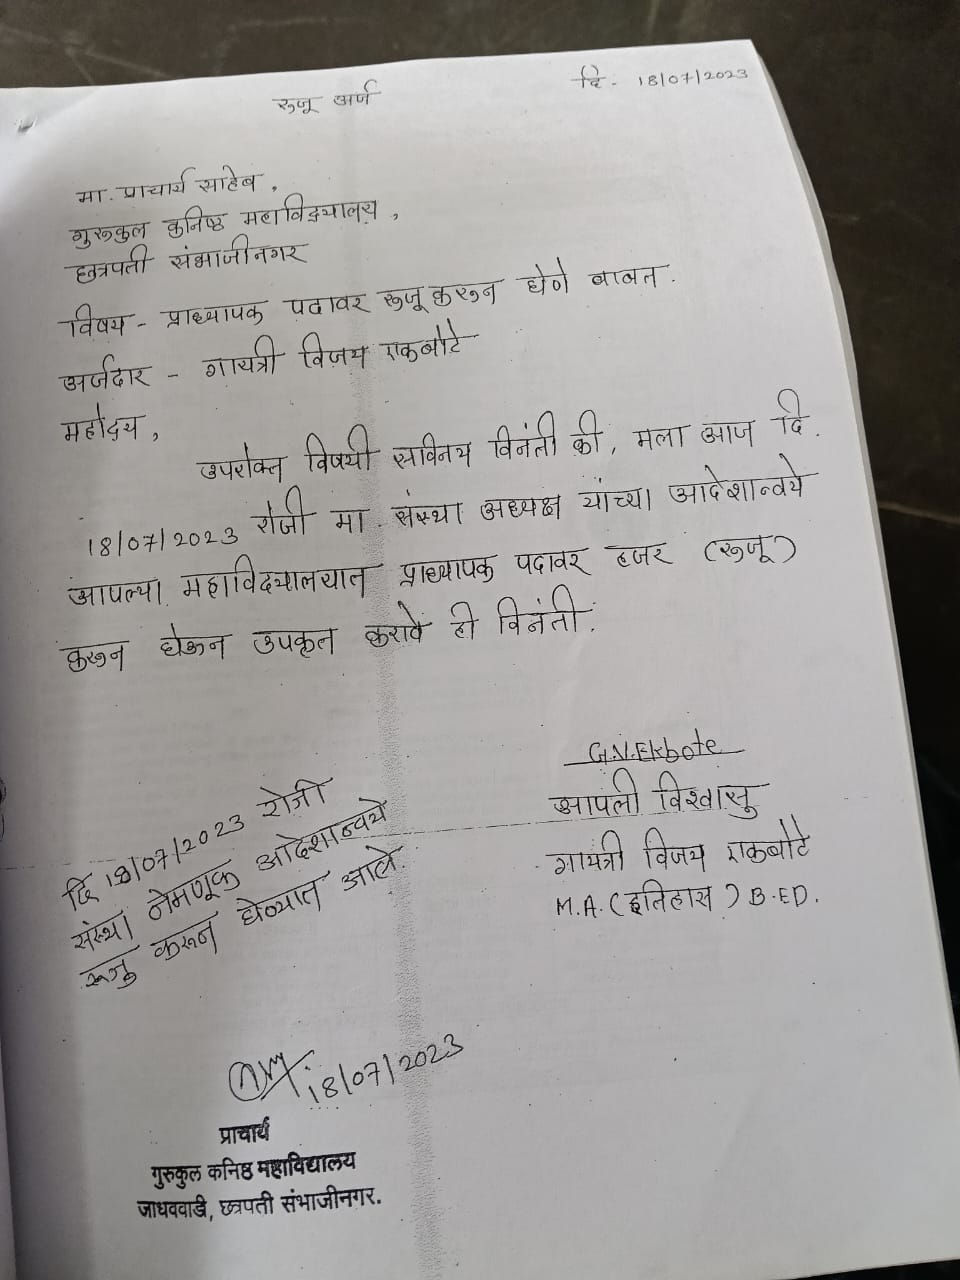 रुजू अर्ज
दि - 18/07/2023
मा. प्राचार्य साहेब,
गुरुकुल कनिष्ठ महाविद्यालय,
छत्रपती संभाजीनगर
विषय - प्राध्यापक पदावर रुजू करून घेणे बाबत.
अर्जदार - गायत्री विजय एकबोटे
महोदय,
उपरोक्त विषयी सविनय विनंती की, मला आज दि.
18/07/2023 रोजी मा. संस्था अध्यक्ष यांच्या आदेशान्वये
आपल्या महाविद्यालयात प्राध्यापक पदावर हजर (रुजू)
करून घेऊन उपकृत करावे ही विनंती.
G.V.Ekbote
आपली विश्वासु
गायत्री विजय एकबोटे
M.A. (इतिहास) B.ED.
दि 18/07/2023 रोजी
संस्था नेमणूक आदेशान्वये
रुजु करून घेण्यात आले
18/07/2023
प्राचार्य
गुरुकुल कनिष्ठ महाविद्यालय
जाधववाडी, छत्रपती संभाजीनगर.